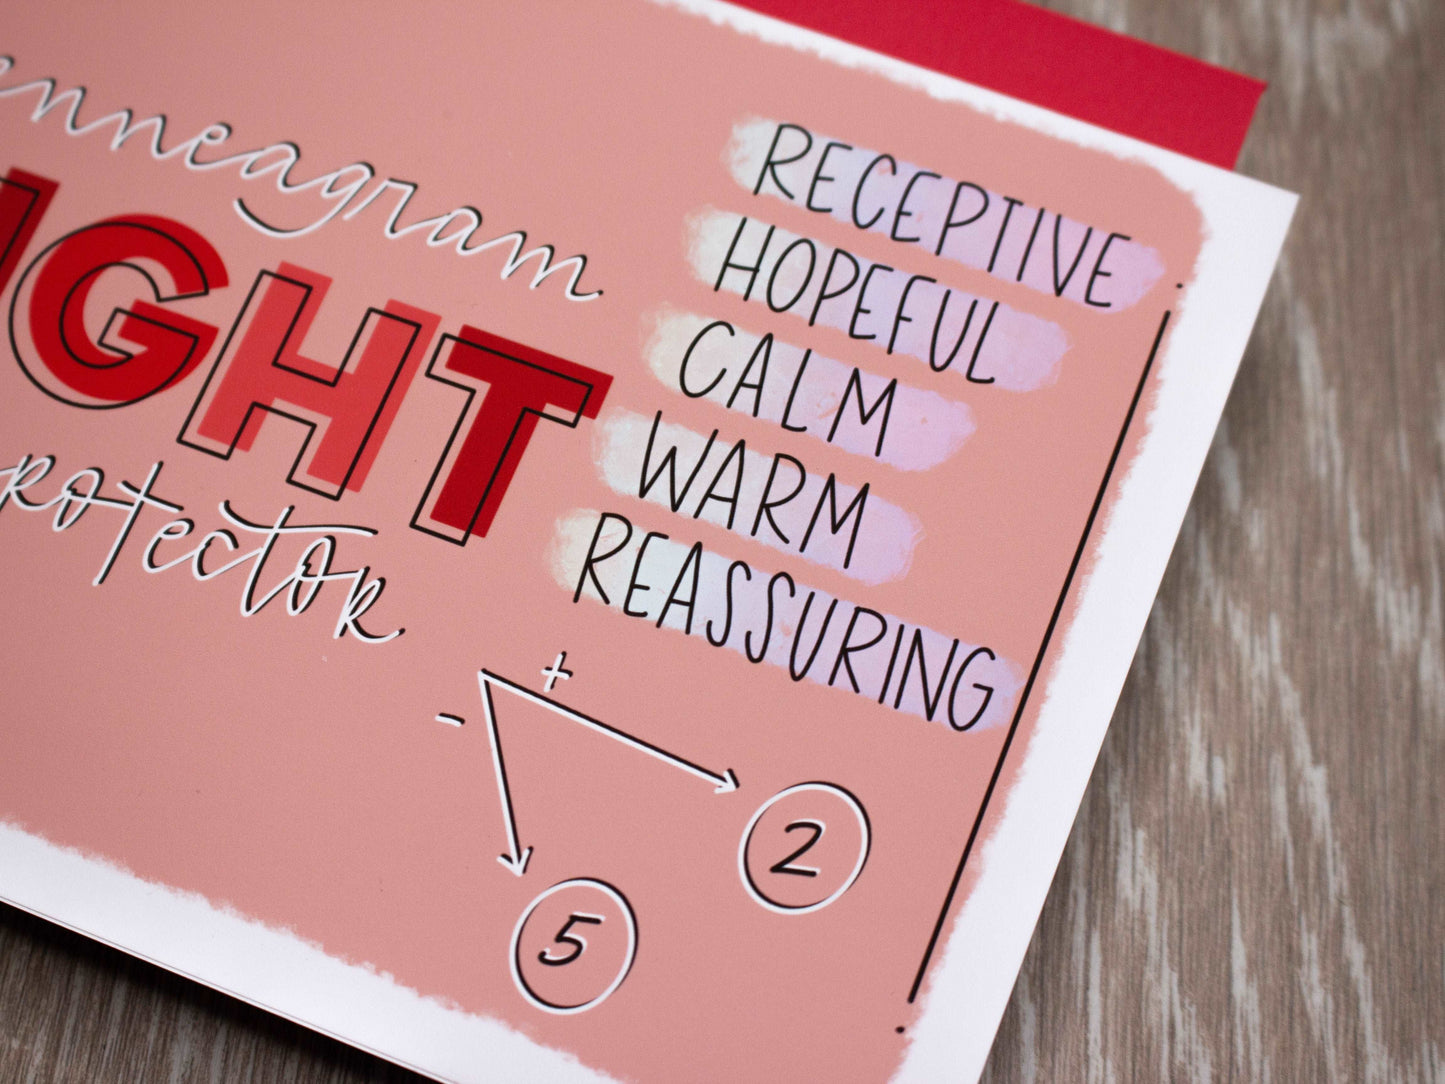 enneagram
IGHT
rotector
RECEPTIVE
HOPEFUL
CALM
WARM
REASSURING
+
-
2
5